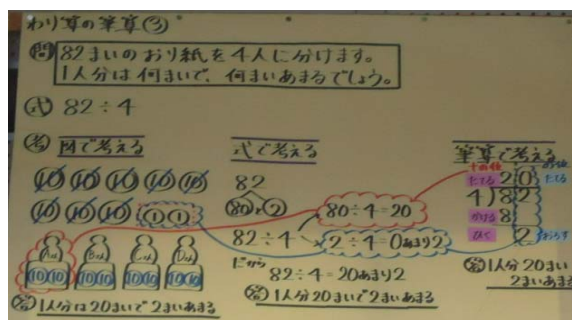 わり算の筆算③
問 82まいのおり紙を4人に分けます。
1人分は何まいで、何まいあまるでしょう。
式 82÷4
考 図で考える
10 10 10 10 10
10 10 10 1 1
Aくん Bくん Cくん Dくん
10 10 10 10 10 10 10 10
答 1人分は20まいで2まいあまる
式で考える
82
80 と 2
80÷4=20
82÷4
2÷4=0あまり2
だから
82÷4=20あまり2
答 1人分20まいで2まいあまる
筆算で考える
十の位
たてる 20 たてる
4)82
かける 8
ひく 2 おろす
答 1人分20まい
2まいあまる